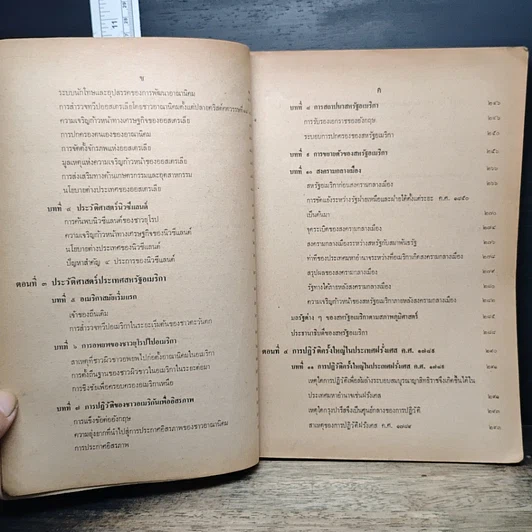 ข
ระบบนักโทษและอุปสรรคของการพัฒนาอาณานิคม
การสำรวจทวีปออสเตรเลียโดยชาวอาณานิคมตั้งแต่ปลายคริสต์ศตวรรษที่
ความเจริญก้าวหน้าทางเศรษฐกิจของออสเตรเลีย
การปกครองตนเองของอาณานิคม
การจัดตั้งจักรภพแห่งออสเตรเลีย
มูลเหตุแห่งความเจริญก้าวหน้าของออสเตรเลีย
การส่งเสริมทางด้านเกษตรกรรมและอุตสาหกรรม
นโยบายต่างประเทศของออสเตรเลีย
บทที่ ๔ ประวัติศาสตร์นิวซีแลนด์
การค้นพบนิวซีแลนด์ของชาวยุโรป
ความเจริญก้าวหน้าทางเศรษฐกิจของนิวซีแลนด์
นโยบายต่างประเทศของนิวซีแลนด์
ปัญหาสำคัญ ๔ ประการของนิวซีแลนด์
ตอนที่ ๓ ประวัติศาสตร์ประเทศสหรัฐอเมริกา
บทที่ ๕ อเมริกาสมัยเริ่มแรก
เจ้าของถิ่นเดิม
การสำรวจทวีปอเมริกาในระยะเริ่มต้นของชาวตะวันตก
บทที่ ๖ การอพยพของชาวยุโรปไปอเมริกา
สาเหตุที่ชาวผิวขาวอพยพไปก่อตั้งอาณานิคมในอเมริกา
การตั้งถิ่นฐานของชาวผิวขาวในอเมริกาในระยะต่อมา
การชิงชัยเพื่อครอบครองอเมริกาเหนือ
บทที่ ๗ การปฏิวัติของชาวอเมริกันเพื่ออิสรภาพ
การแข็งข้อต่ออังกฤษ
ความยุ่งยากที่นำไปสู่การประกาศอิสรภาพของชาวอาณานิคม
การประกาศอิสรภาพ
ค
บทที่ ๘ การสถาปนาสหรัฐอเมริกา
การรับรองเอกราชของอังกฤษ
ระบอบการปกครองของสหรัฐอเมริกา
บทที่ ๙ การขยายตัวของสหรัฐอเมริกา
บทที่ ๑๐ สงครามกลางเมือง
สหรัฐอเมริกาก่อนสงครามกลางเมือง
การขัดแย้งระหว่างรัฐฝ่ายเหนือและฝ่ายใต้ตั้งแต่ระยะ ค.ศ. ๑๘๕๐
เป็นต้นมา
จุดระเบิดของสงครามกลางเมือง
สงครามกลางเมืองระหว่างสหรัฐกับสมาพันธรัฐ
ท่าทีของประเทศมหาอำนาจระหว่างที่อเมริกาเกิดสงครามกลางเมือง
สรุปผลของสงครามกลางเมือง
รัฐทางใต้ภายหลังสงครามกลางเมือง
ความเจริญก้าวหน้าของสหรัฐอเมริกาภายหลังสงครามกลางเมือง
มลรัฐต่าง ๆ ของสหรัฐอเมริกาตามสภาพภูมิศาสตร์
ประธานาธิบดีของสหรัฐอเมริกา
ตอนที่ ๔ การปฏิวัติครั้งใหญ่ในประเทศฝรั่งเศส ค.ศ. ๑๗๘๙
บทที่ ๑๑ การปฏิวัติครั้งใหญ่ในประเทศฝรั่งเศส ค.ศ. ๑๗๘๙
เหตุใดการปฏิวัติเพื่อล้มล้างระบอบสมบูรณาญาสิทธิราชจึงเกิดขึ้นได้ใน
ประเทศมหาอำนาจเช่นฝรั่งเศส
เหตุใดกรุงปารีสจึงเป็นศูนย์กลางของการปฏิวัติ
สาเหตุของการปฏิวัติฝรั่งเศส ค.ศ. ๑๗๘๙